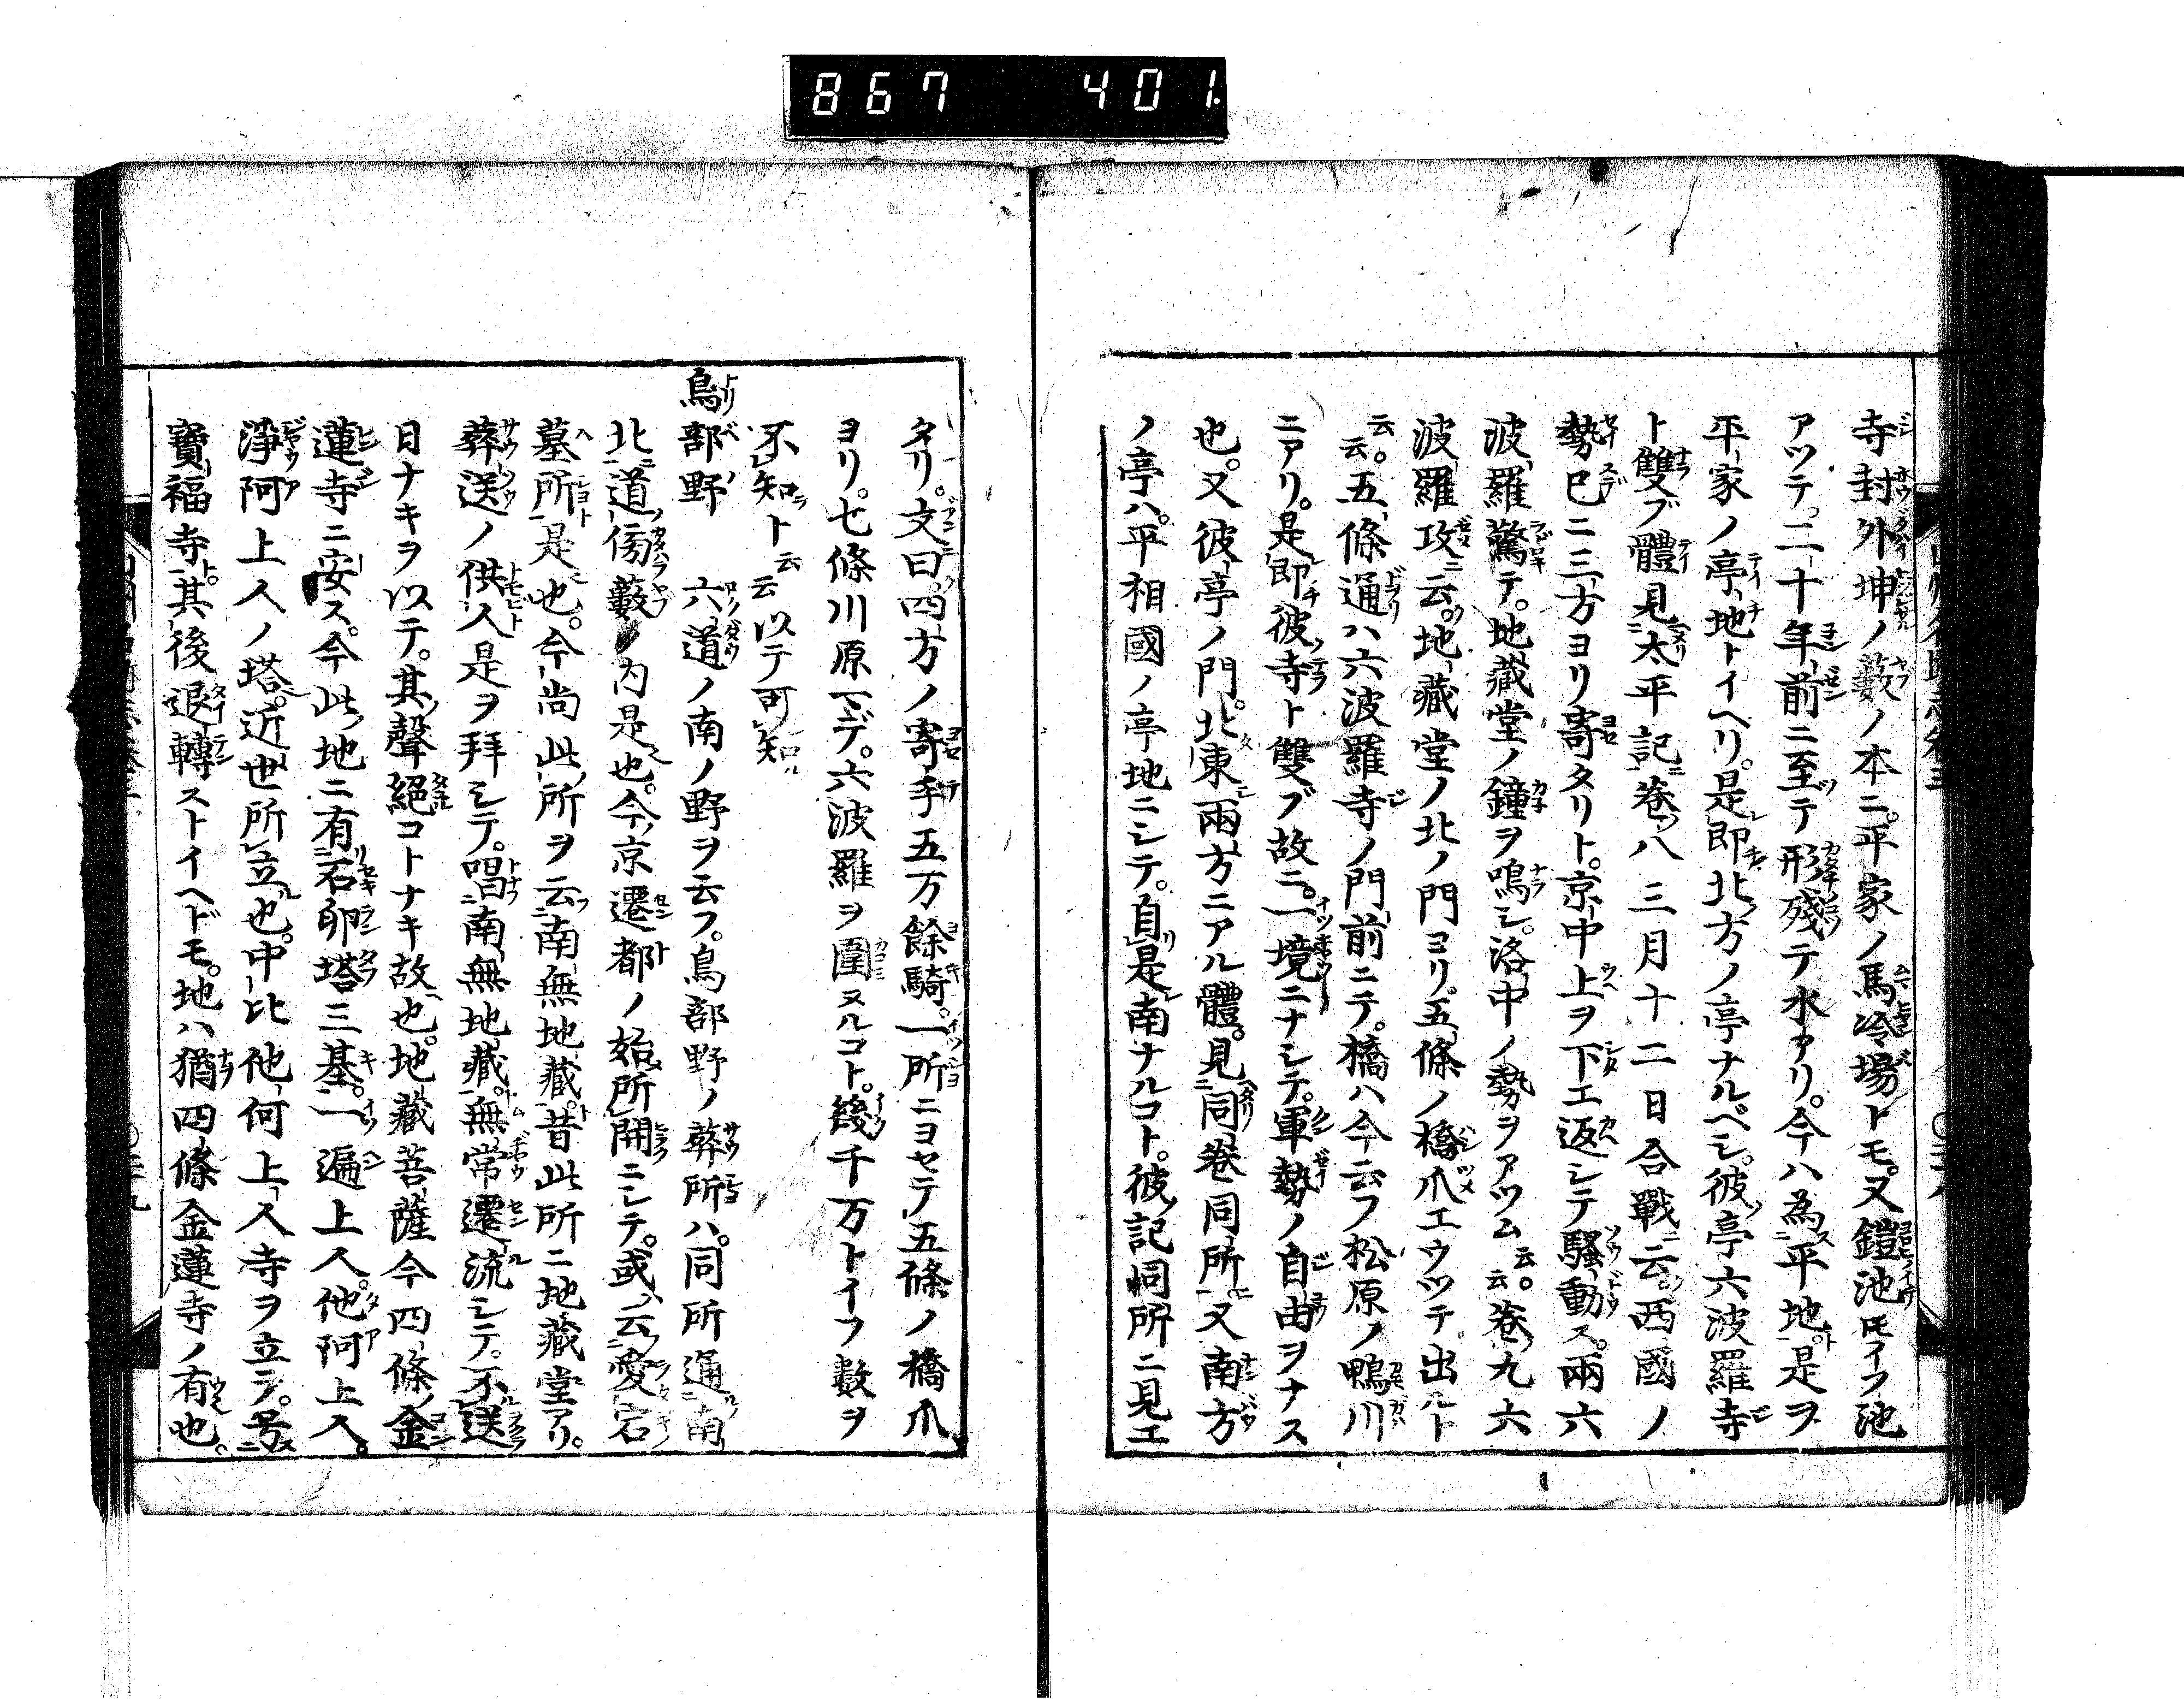 867 401
寺封外坤ノ藪ノ本ニ。平家ノ馬冷場トモ。又鎧池トモイフ池
アツテ。二十年前ニ至テ形殘テ水アリ。今ハ為平地。是ヲ
平家ノ亭地トイヘリ。是即北方ノ亭ナルベシ。彼亭六波羅寺
ト雙ブ體見太平記卷八三月十二日合戰云。西國ノ
勢已ニ三方ヨリ寄タリト。京中上ヲ下エ返シテ騷動ス。兩六
波羅驚テ。地藏堂ノ鐘ヲ鳴シ。洛中ノ勢ヲアツム云云。卷九六
波羅攻云。地藏堂ノ北ノ門ヨリ。五條ノ橋爪エウツテ出ルト
云云。五條通ハ六波羅寺ノ門前ニテ。橋ハ今云フ松原ノ鴨川
ニアリ。是即彼寺ト雙ブ故ニ。一境ニナシテ。軍勢ノ自由ヲナス
也。又彼亭ノ門。北東兩方ニアル體。見同卷同所。又南方
ノ亭ハ。平相國ノ亭地ニシテ。自是南ナルコト。彼記同所ニ見エ
タリ。文曰。四方ノ寄手五万餘騎。一所ニヨセテ五條ノ橋爪
ヨリ。七條川原マデ。六波羅ヲ圍ヌルコト。幾千万トイフ數ヲ
不知ト云云以テ可知
鳥部野 六道ノ南ノ野ヲ云フ。鳥部野ノ葬所ハ。同所通南
北道傍藪ノ内是也。今京遷都ノ始所開ニシテ。或云愛宕
墓所是也。今尚此所ヲ云南無地藏。昔此所ニ地藏堂アリ。
葬送ノ供人是ヲ拜シテ。唱南無地藏。無常遷流シテ。不送
日ナキヲ以テ。其聲絕コトナキ故也。地藏菩薩今四條金
蓮寺ニ安ス。今此地ニ有石卵塔三基。一遍上人。他阿上人。
淨阿上人ノ塔。近世所立也。中比他何上人寺ヲ立テ。号
寶福寺。其後退轉ストイヘドモ。地ハ猶四條金蓮寺ノ有也。